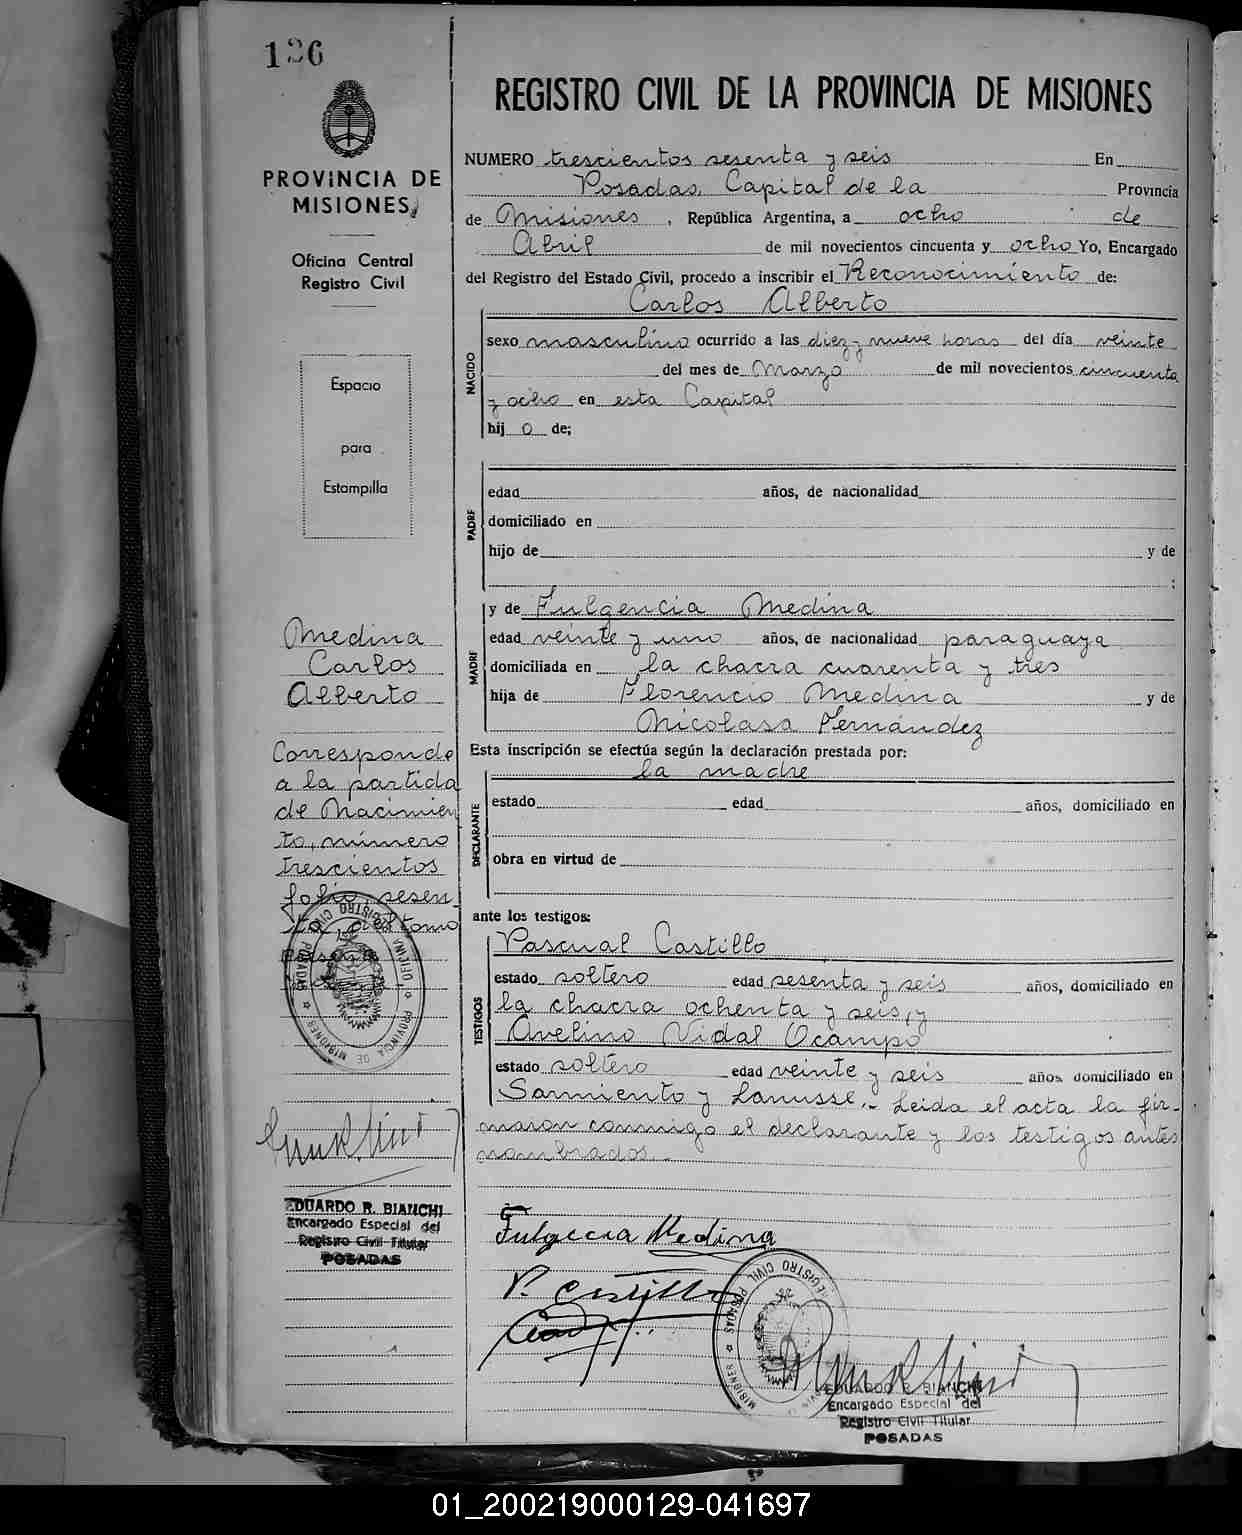 126
PROVINCIA DE
MISIONES
Oficina Central
Registro Civil
Espacio
para
Estampilla
Medina
Carlos
Alberto
Corresponde
a la partida
de Nacimien
to, número
trescientos
folio sesen
ta, del tomo
EDUARDO R. BIANCHI
Encargado Especial del
Registro Civil Titular
POSADAS
REGISTRO CIVIL DE LA PROVINCIA DE MISIONES
NUMERO trescientos sesenta y seis En
Posadas, Capital de la Provincia
de Misiones, República Argentina, a ocho de
Abril de mil novecientos cincuenta y ocho Yo, Encargado
del Registro del Estado Civil, procedo a inscribir el Reconocimiento de:
Carlos Alberto
NACIDO
sexo masculino ocurrido a las diez y nueve horas del día veinte
del mes de Marzo de mil novecientos cincuenta
y ocho en esta Capital
hij o de;
PADRE
edad años, de nacionalidad
domiciliado en
hijo de y de
;
MADRE
y de Fulgencia Medina
edad veinte y uno años, de nacionalidad paraguaya
domiciliada en la chacra cuarenta y tres
hija de Florencio Medina y de
Nicolasa Fernández
Esta inscripción se efectúa según la declaración prestada por:
la madre
DECLARANTE
estado edad años, domiciliado en
obra en virtud de
ante los testigos:
TESTIGOS
Pascual Castillo
estado soltero edad sesenta y seis años, domiciliado en
la chacra ochenta y seis, y
Avelino Vidal Ocampo
estado soltero edad veinte y seis años domiciliado en
Sarmiento y Lanusse.- Leída el acta la fir-
maron conmigo el declarante y los testigos antes
nombrados.-
Fulgecia Medina
P. Castillo
REGISTRO CIVIL POSADAS
MISIONES
EDUARDO R. BIANCHI
Encargado Especial del
Registro Civil Titular
POSADAS
01_200219000129-041697